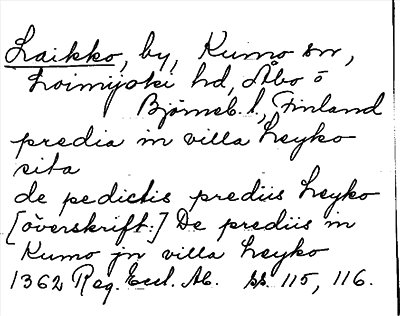 Laikko, by, Kumo sn,
Loimijoki hd, Åbo o
Björneb. l, Finland
predia in villa Leyko
sita
de pedictis prediis Leyko
[överskrift:] De prediis in
Kumo jn villa Leyko
1362 Reg. Eccl. Ab. ss. 115, 116.